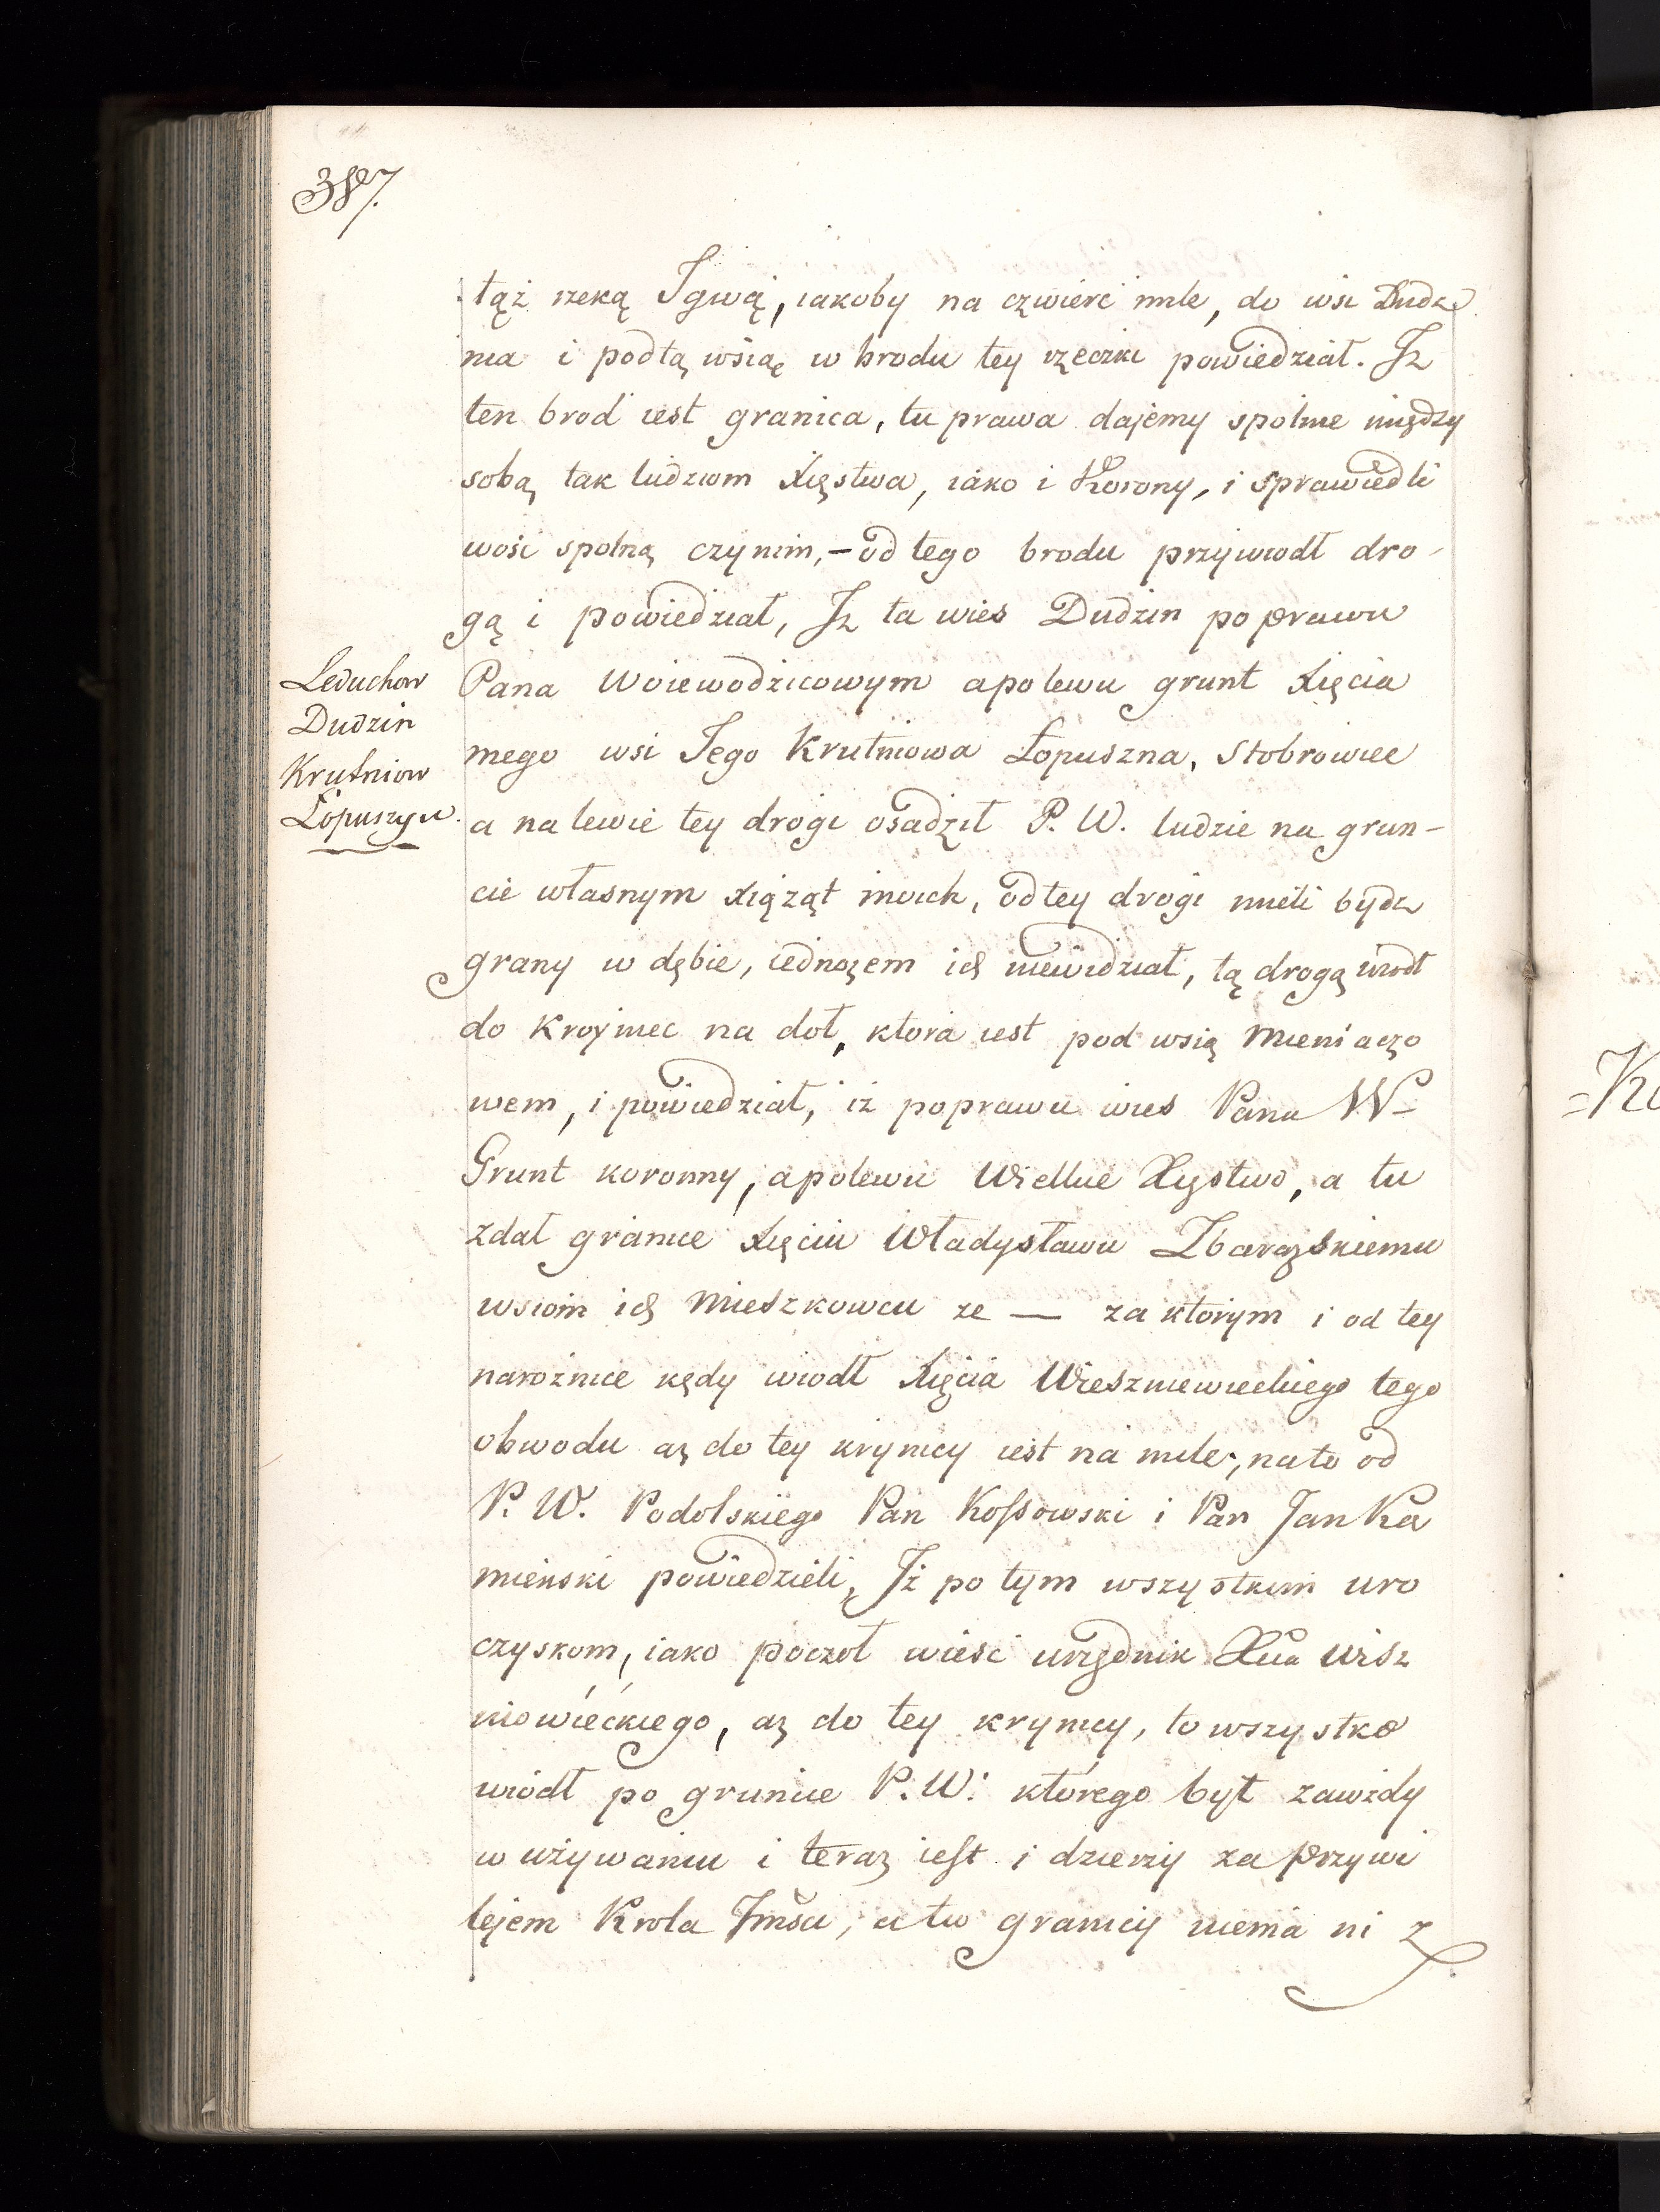 387.
tąż rzeką Igwą, iakoby na czwierć mile, do wsi Dudz
nia i podtą wsiąę w brodu tey rzeczki powiedział. Iz
ten brod iest granica, tu prawa dajemy spolnie między
sobą tak ludziom Xięstwa, iako i Korony, i sprawiedli
wości spolną czynim, – od tego brodu przywiodł dro-
gą i powiedział, Iz ta wies Dudzin po prawu
Pana Woiewodzicowym apolewu grunt Xięcia
mego wsi Jego Krutniowa Łopuszna, Stobrowiec
a na lewie tey drogi osadził P. W. ludzie na grun-
cie własnym Xiążąt moich, od tey drogi mieli bydz
grany w dębie, iednazem ich niewidział, tą drogą wiodł
do Kroyniec na doł, ktora iest pod wsią Mieniaczo
wem, i powiedział, iż poprawu wies Pana W–
Grunt koronny, apolewu Wielkie Xięstwo, a tu
zdał granice Xięciu Władysławu Zbarazskiemu
wsiom ich Mieszkowcu ze — za ktorym i od tey
narożnice kędy wiodł Xięcia Wieszniewieckiego tego
obwodu az do tey krynicy iest na mile, na to od
P. W. Podolskiego Pan Kossowski i Pan Jan Ka
mienski powiedzieli, Iż po tym wszystkim uro
czyskom, iako poczoł wieść urzędnik Xcia Wisz
niowieckiego, az do tey krynicy, to wszystko
wiodł po grunice P. W. którego był zawżdy
w używaniu i teraz iest i dzierży za przywi
lejem Krola Jmści, a tu granicy niema ni z
Leduchow
Dudzin
Krutniow
Łopuszyn.